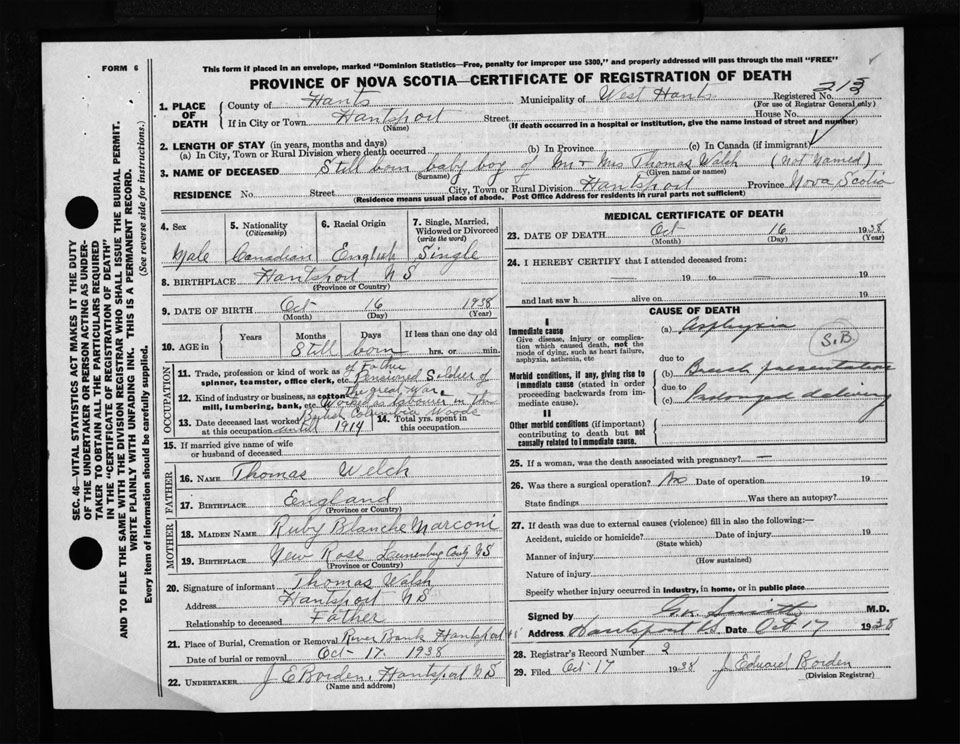 FORM 6
This form if placed in an envelope, marked "Dominion Statistics—Free, penalty for improper use $300," and properly addressed will pass through the mail "FREE"
PROVINCE OF NOVA SCOTIA—CERTIFICATE OF REGISTRATION OF DEATH
1. PLACE OF DEATH
County of Hants Municipality of West Hants Registered No. 213
(For use of Registrar General only)
If in City or Town Hantsport Street House No.
(Name) (If death occurred in a hospital or institution, give the name instead of street and number)
2. LENGTH OF STAY (in years, months and days)
(a) In City, Town or Rural Division where death occurred (b) In Province (c) In Canada (if immigrant)
3. NAME OF DECEASED Still born baby boy of Mr + Mrs Thomas Walsh (Not Named)
(Surname) (Given name or names)
RESIDENCE No. Street City, Town or Rural Division Hantsport Province Nova Scotia
(Residence means usual place of abode. Post Office Address for residents in rural parts not sufficient)
4. Sex 5. Nationality (Citizenship) 6. Racial Origin 7. Single, Married, Widowed or Divorced (write the word)
Male Canadian English Single
8. BIRTHPLACE Hantsport NS
(Province or Country)
9. DATE OF BIRTH Oct 16 1938
(Month) (Day) (Year)
10. AGE in Years Months Days If less than one day old
Still born hrs. or min.
OCCUPATION
11. Trade, profession or kind of work as spinner, teamster, office clerk, etc. of Father Pensioned Soldier of
12. Kind of industry or business, as cotton mill, lumbering, bank, etc. the great War. Worked as labourer in the
13. Date deceased last worked at this occupation British Columbia Woods untill 1914
14. Total yrs. spent in this occupation
15. If married give name of wife or husband of deceased
FATHER
16. NAME Thomas Welch
17. BIRTHPLACE England
(Province or Country)
MOTHER
18. MAIDEN NAME Ruby Blanche Marconi
19. BIRTHPLACE New Ross Lunenburg County NS
(Province or Country)
20. Signature of informant Thomas Walsh
Address Hantsport NS
Relationship to deceased Father
21. Place of Burial, Cremation or Removal River Bank Hantsport
Date of burial or removal Oct 17 1938
22. UNDERTAKER J E Borden, Hantsport NS
(Name and address)
MEDICAL CERTIFICATE OF DEATH
23. DATE OF DEATH Oct 16 1938
(Month) (Day) (Year)
24. I HEREBY CERTIFY that I attended deceased from:
19 to 19
and last saw h alive on 19
CAUSE OF DEATH
I
Immediate cause
Give disease, injury or complication which caused death, not the mode of dying, such as heart failure, asphyxia, asthenia, etc
(a) Asphyxia
S.B.
due to
Morbid conditions, if any, giving rise to immediate cause (stated in order proceeding backwards from immediate cause).
(b) Breech presentation
due to
(c) Prolonged delivery
II
Other morbid conditions (if important) contributing to death but not causally related to immediate cause.
25. If a woman, was the death associated with pregnancy? —
26. Was there a surgical operation? No Date of operation 19
State findings Was there an autopsy?
27. If death was due to external causes (violence) fill in also the following:—
Accident, suicide or homicide? Date of injury 19
(State which)
Manner of injury
(How sustained)
Nature of injury
Specify whether injury occurred in industry, in home, or in public place
Signed by G.K. Smith M.D.
Address Hantsport N.S. Date Oct 17 1938
28. Registrar's Record Number 2
29. Filed Oct 17 1938 J Edward Borden
(Division Registrar)
SEC. 46—VITAL STATISTICS ACT MAKES IT THE DUTY
OF THE UNDERTAKER OR PERSON ACTING AS UNDERTAKER TO OBTAIN ALL THE PARTICULARS REQUIRED
IN THE "CERTIFICATE OF REGISTRATION OF DEATH"
AND TO FILE THE SAME WITH THE DIVISION REGISTRAR WHO SHALL ISSUE THE BURIAL PERMIT.
WRITE PLAINLY WITH UNFADING INK. THIS IS A PERMANENT RECORD.
Every item of information should be carefully supplied. (See reverse side for instructions.)